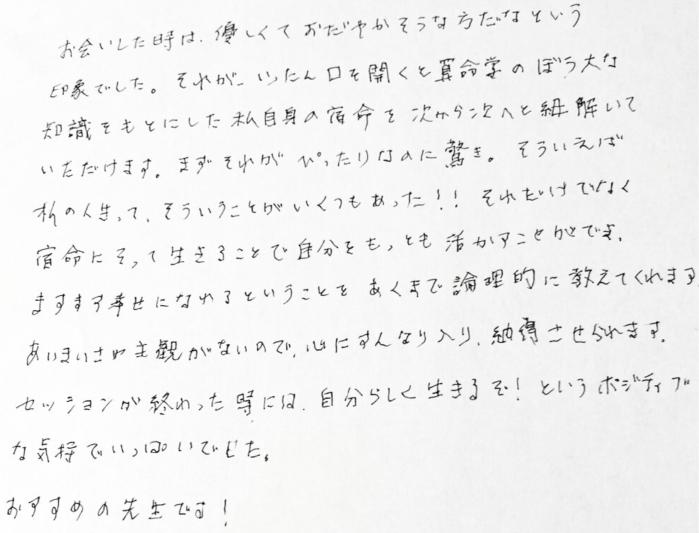 お会いした時は、優しくておだやかそうな方だなという
印象でした。それが、いったん口を開くと算命学のぼう大な
知識をもとにした私自身の宿命を次から次へと紐解いて
いただけます。まずそれがぴったりなのに驚き。そういえば
私の人生って、そういうことがいくつもあった!! それだけでなく
宿命にそって生きることで自分をもっとも活かすことができ、
ますます幸せになれるということをあくまで論理的に教えてくれます
あいまいさや主観がないので、心にすんなり入り、納得させられます。
セッションが終わった時には、自分らしく生きるぞ!というポジティブ
な気持でいっぱいでした。
おすすめの先生です!